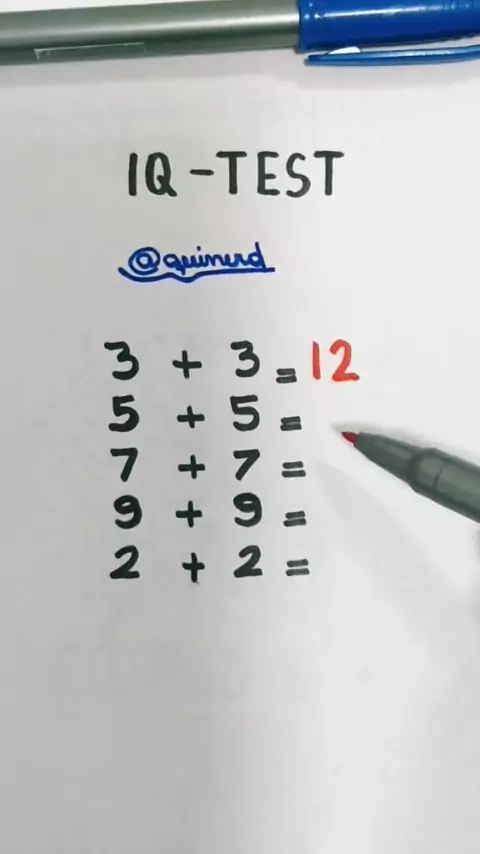 IQ-TEST
@quinerd
3 + 3 = 12
5 + 5 =
7 + 7 =
9 + 9 =
2 + 2 =